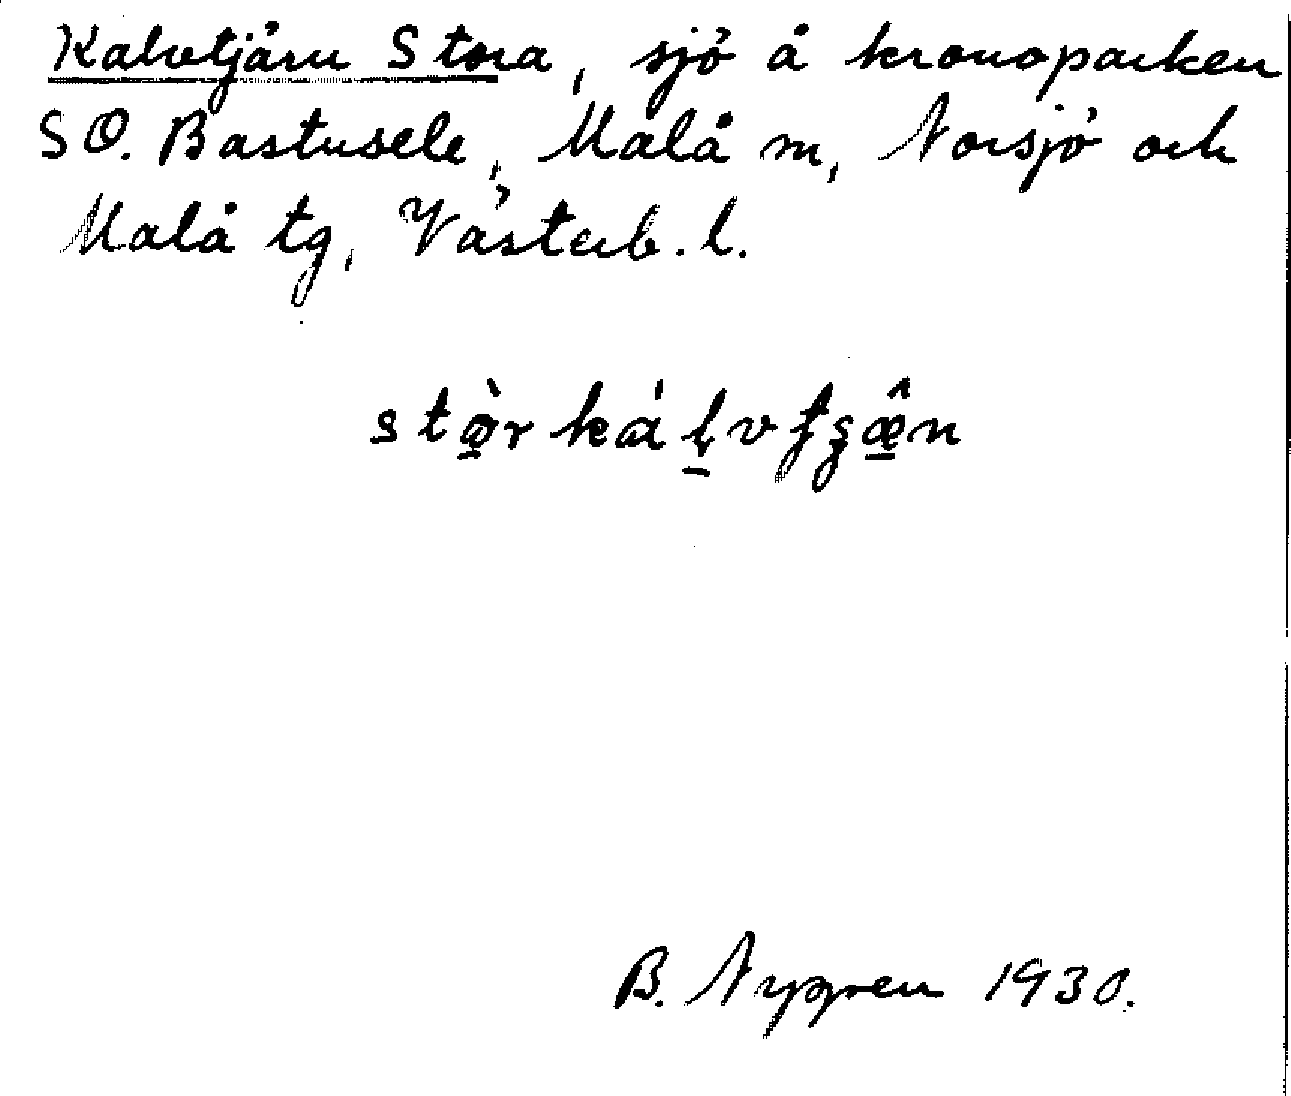 Kalvtjärn Stora, sjö å kronoparken
SO. Bastusele, Malå sn, Norsjö och
Malå tg, Västerb. l.
B. Nygren 1930.